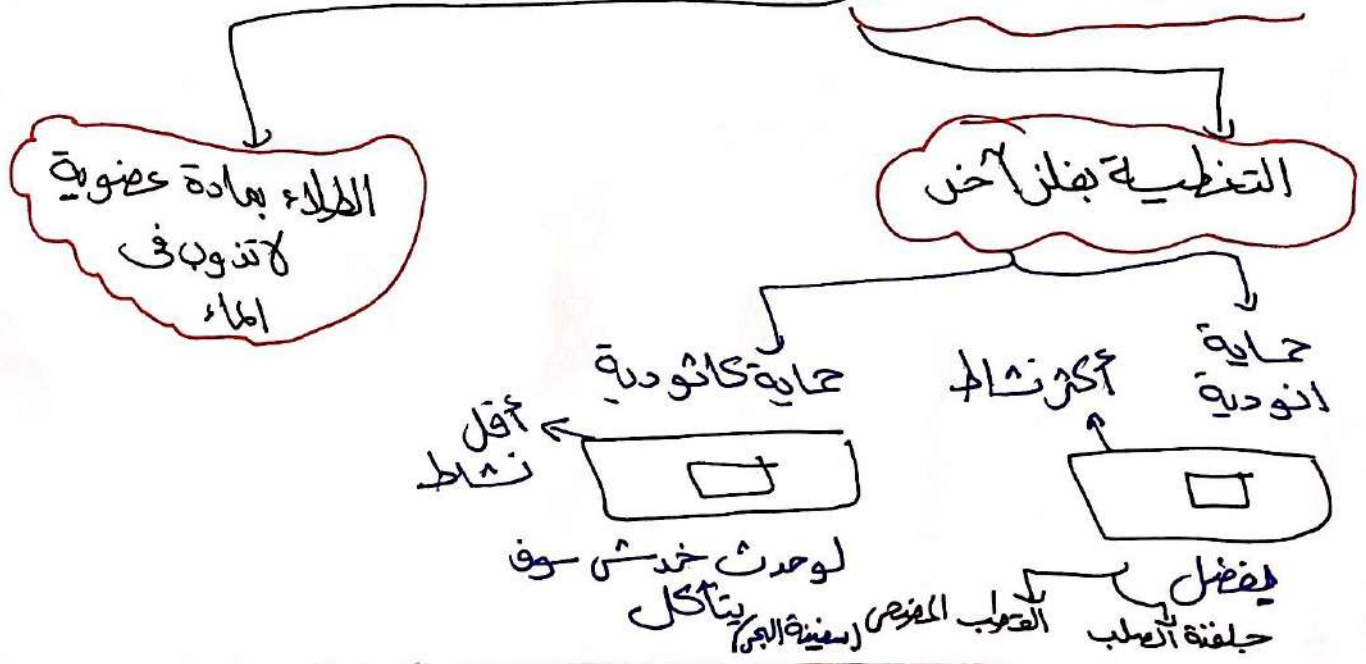 التغطية بفلز آخر
الطلاء بمادة عضوية
لا تذوب فى
الماء
حماية
انودية
أكثر نشاط
حماية كاثودية
أقل
نشاط
يفضل
جلفنة الصلب
القطب المضحى
(سفينة البحر)
لو حدث خدش سوف
يتآكل